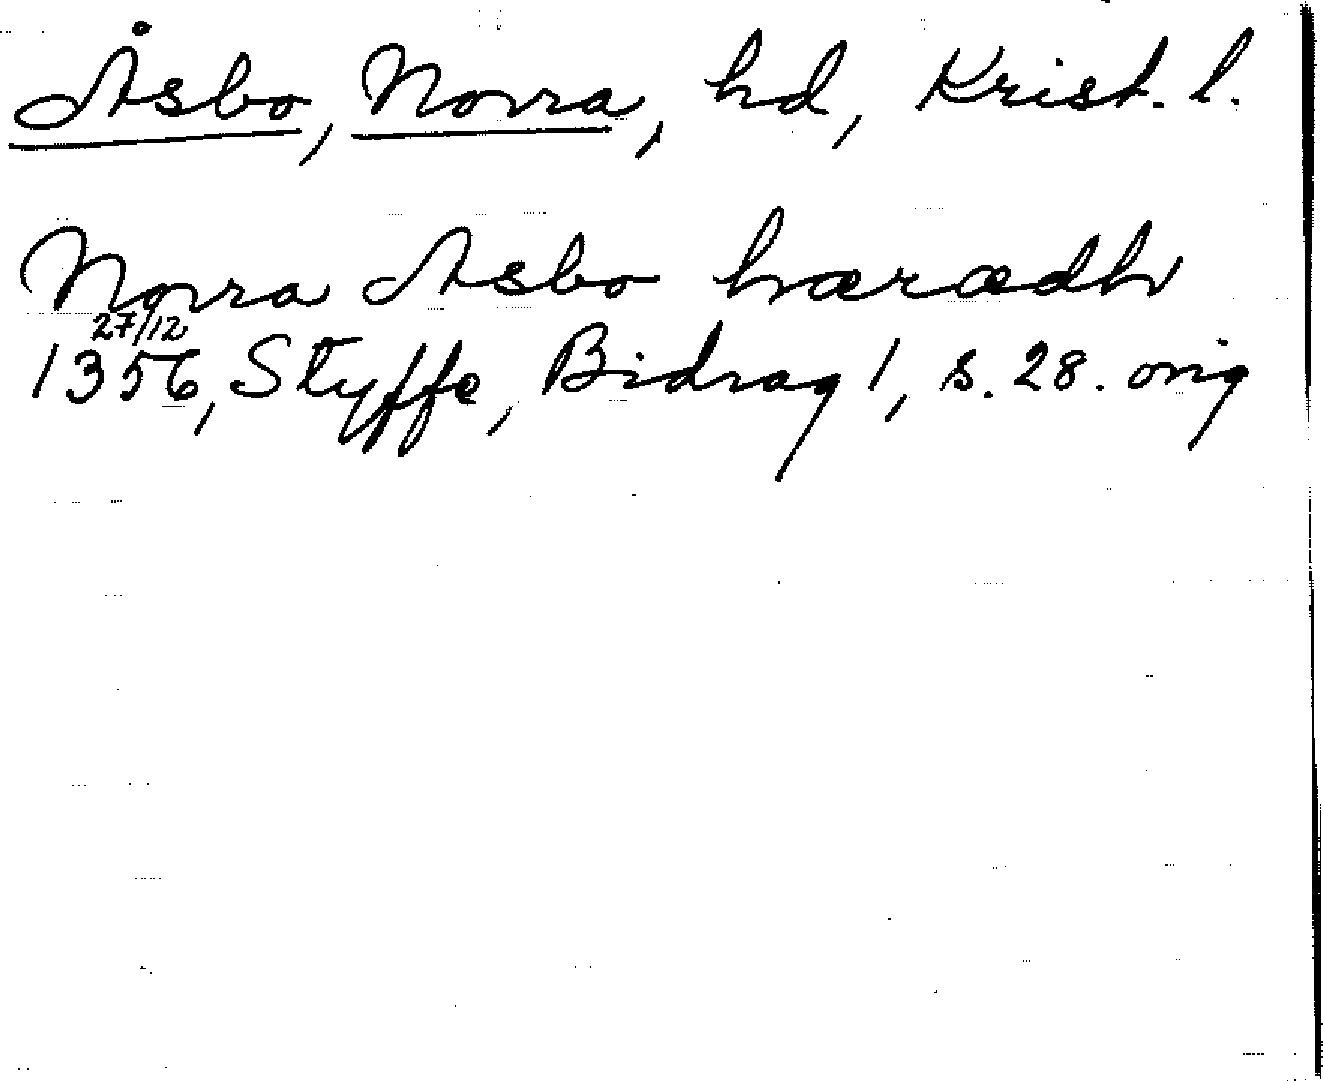 Åsbo, Norra, hd, Krist. l.
Norra Asbo hærædh
27/12
1356, Styffe, Bidrag 1, s. 28. orig